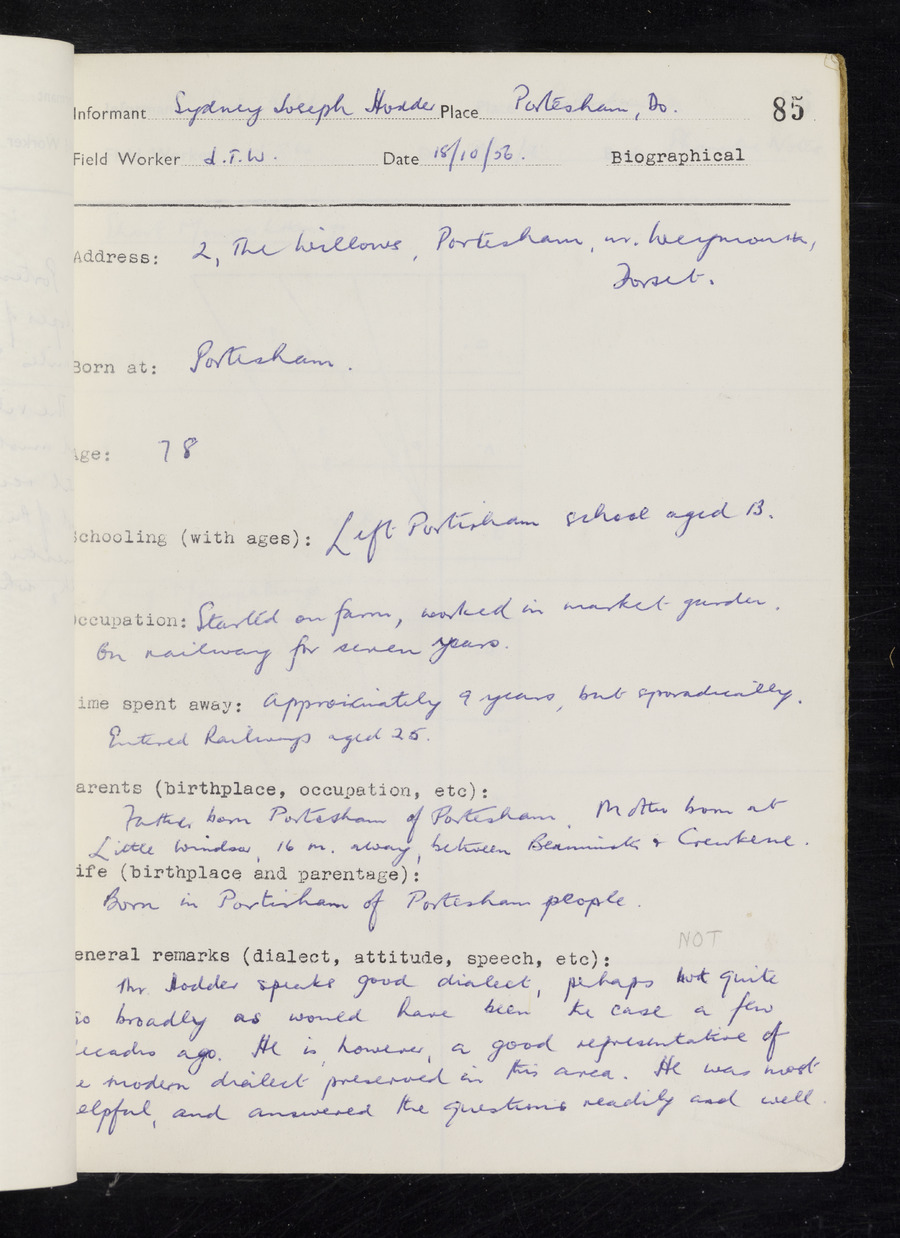 Informant Sydney Joseph Hodder Place Portesham, Do. 85
Field Worker J.T.W. Date 18/10/56. Biographical
Address: 2, The Willows, Portesham, nr. Weymouth,
Dorset.
Born at: Portesham.
Age: 78
Schooling (with ages): Left Portisham school aged 13.
Occupation: Started on farm, worked in market garden.
On railway for seven years.
ime spent away: Approximately 9 years, but sporadically.
Entered Railways aged 25.
arents (birthplace, occupation, etc):
Father born Portesham of Portesham. Mother born at
Little Windsor, 16 m. away, between Beaminster & Crewkerne.
ife (birthplace and parentage):
Born in Portisham of Portesham people.
NOT
eneral remarks (dialect, attitude, speech, etc):
Mr. Hodder speaks good dialect, perhaps not quite
so broadly as would have been the case a few
decades ago. He is, however, a good representative of
e modern dialect preserved in this area. He was most
elpful, and answered the questions readily and well.